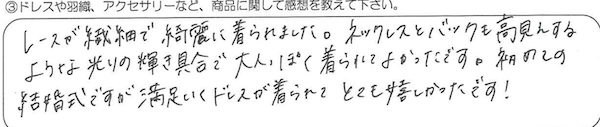 ③ドレスや羽織、アクセサリーなど、商品に関して感想を教えて下さい。
レースが繊細で綺麗に着られました。ネックレスとバックも高見えする
ような光りの輝き具合で大人っぽく着られてよかったです。初めての
結婚式ですが満足いくドレスが着られてとても嬉しかったです！